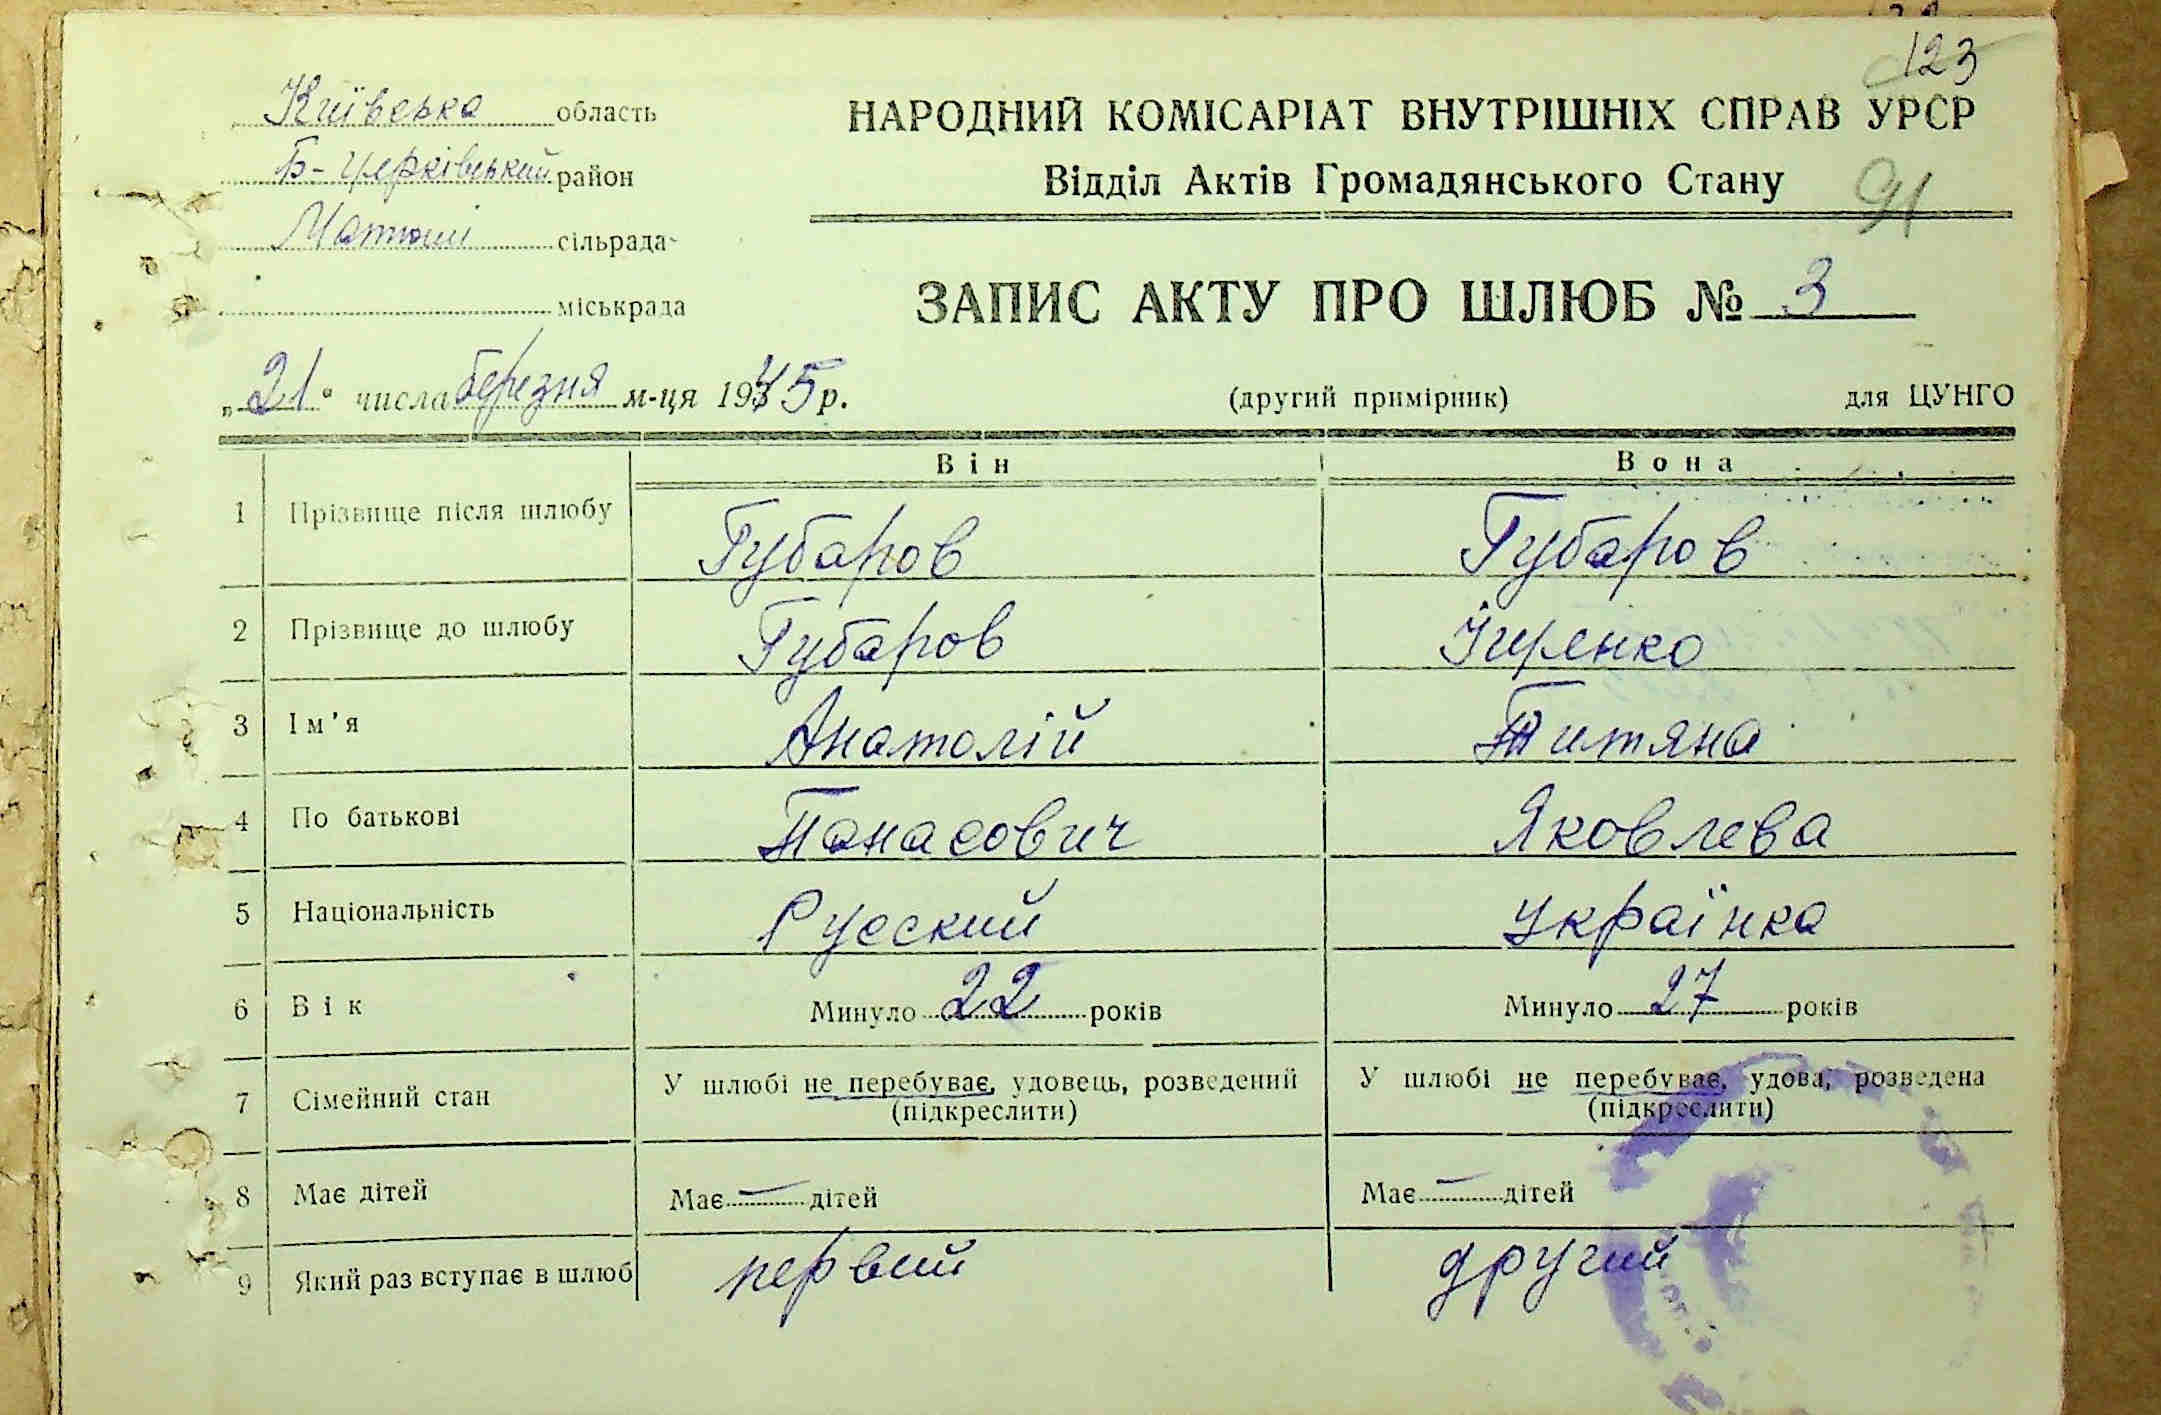 123
Київська область
НАРОДНИЙ КОМІСАРІАТ ВНУТРІШНІХ СПРАВ УРСР
Б-Церківський район
Відділ Актів Громадянського Стану
91
Матюші сільрада
міськрада
ЗАПИС АКТУ ПРО ШЛЮБ № 3
„21" числа березня м-ця 1945 р.
(другий примірник) для ЦУНГО
Він Вона
1 Прізвище після шлюбу Губаров Губаров
2 Прізвище до шлюбу Губаров
3 Ім'я Анатолій Титяна
4 По батькові Панасович Яковлева
5 Національність Русский Українка
6 Вік Минуло 22 років Минуло 27 років
7 Сімейний стан У шлюбі не перебуває, удовець, розведений У шлюбі не перебуває, удова, розведена
(підкреслити) (підкреслити)
8 Має дітей Має — дітей Має — дітей
9 Який раз вступає в шлюб первий другий